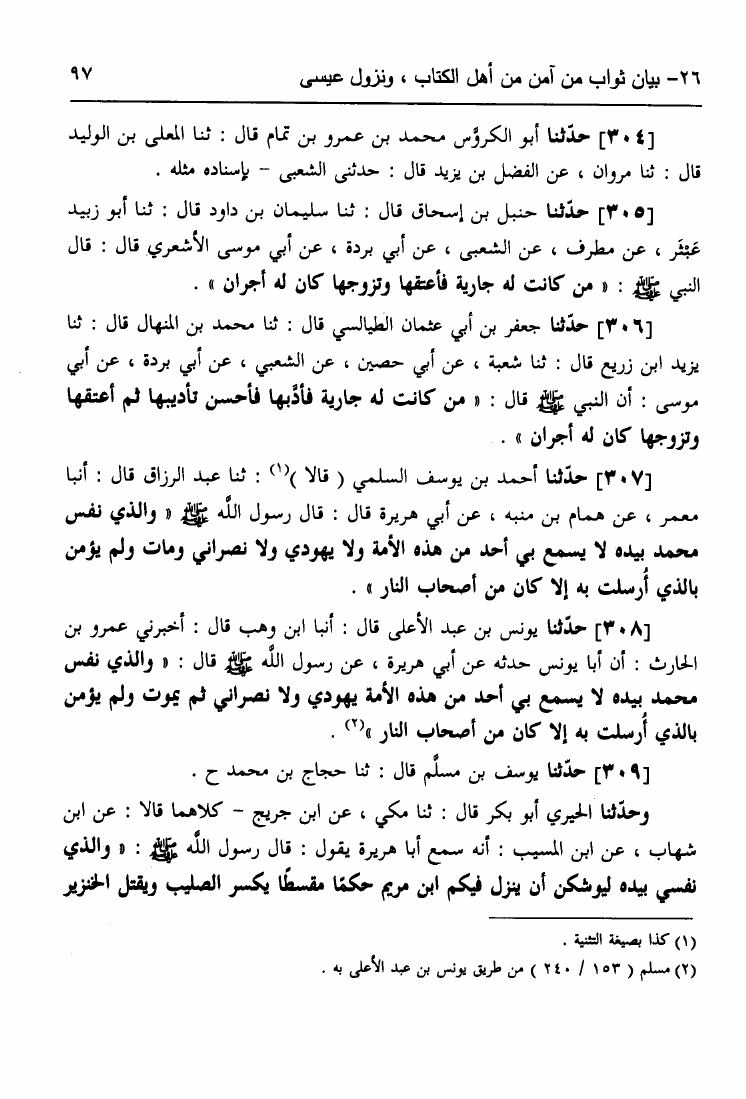 ٢٦- بيان ثواب من آمن من أهل الكتاب ، ونزول عيسى ٩٧
[٣٠٤] حدّثنا أبو الكروَّس محمد بن عمرو بن تمام قال : ثنا المعلى بن الوليد
قال : ثنا مروان ، عن الفضل بن يزيد قال : حدثنى الشعبى - بإسناده مثله .
[٣٠٥] حدّثنا حنبل بن إسحاق قال : ثنا سليمان بن داود قال : ثنا أبو زبيد
عَبْثَر ، عن مطرف ، عن الشعبى ، عن أبي بردة ، عن أبي موسى الأشعري قال : قال
النبي ﷺ : « من كانت له جارية فأعتقها وتزوجها كان له أجران » .
[٣٠٦] حدّثنا جعفر بن أبي عثمان الطيالسي قال : ثنا محمد بن المنهال قال : ثنا
يزيد ابن زريع قال : ثنا شعبة ، عن أبي حصين ، عن الشعبي ، عن أبي بردة ، عن أبي
موسى : أن النبي ﷺ قال : « من كانت له جارية فأدَّبها فأحسن تأديبها ثم أعتقها
وتزوجها كان له أجران » .
[٣٠٧] حدّثنا أحمد بن يوسف السلمي ( قالا )(١) : ثنا عبد الرزاق قال : أنبا
معمر ، عن همام بن منبه ، عن أبي هريرة قال : قال رسول اللَّه ﷺ « والذي نفس
محمد بيده لا يسمع بي أحد من هذه الأمة ولا يهودي ولا نصراني ومات ولم يؤمن
بالذي أُرسلت به إلا كان من أصحاب النار » .
[٣٠٨] حدّثنا يونس بن عبد الأعلى قال : أنبا ابن وهب قال : أخبرني عمرو بن
الحارث : أن أبا يونس حدثه عن أبي هريرة ، عن رسول اللَّه ﷺ قال : « والذي نفس
محمد بيده لا يسمع بي أحد من هذه الأمة يهودي ولا نصراني ثم يموت ولم يؤمن
بالذي أُرسلت به إلا كان من أصحاب النار »(٢) .
[٣٠٩] حدّثنا يوسف بن مسلَّم قال : ثنا حجاج بن محمد ح .
وحدّثنا الحيري أبو بكر قال : ثنا مكي ، عن ابن جريج - كلاهما قالا : عن ابن
شهاب ، عن ابن المسيب : أنه سمع أبا هريرة يقول : قال رسول اللَّه ﷺ : « والذي
نفسي بيده ليوشكن أن ينزل فيكم ابن مريم حكمًا مقسطًا يكسر الصليب ويقتل الخنزير
(١) كذا بصيغة التثنية .
(٢) مسلم ( ١٥٣ / ٢٤٠ ) من طريق يونس بن عبد الأعلى به .